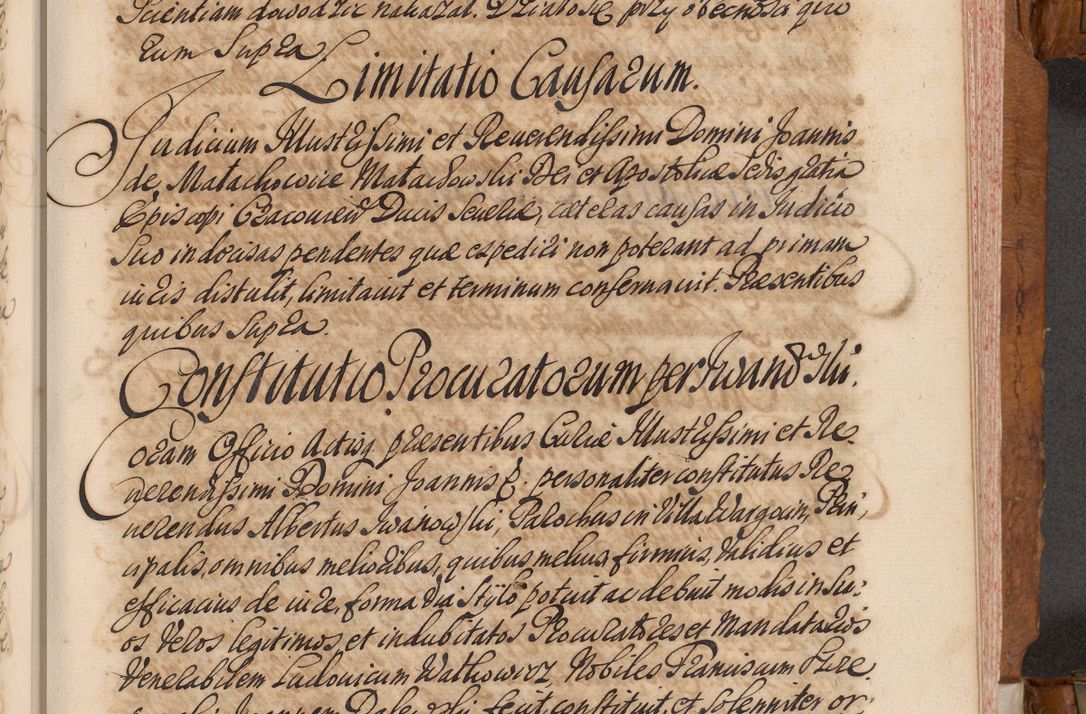 Scientiam dowodzic nakazał. Działo się przy obecnosci quo
rum Supra.
Limitatio Causarum.
Judicium Illustrissimi et Reverendissimi Domini Joannis
de Małachowice Małachowski Dei et Apostolicæ Sedis gratia
Episcopi Cracovien Ducis Severiæ, cæteras causas in Judicio
suo indecisas pendentes quæ expediri non poterant ad primam
iuris distulit, limitavit et terminum conservavit. Præsentibus
quibus supra.
Constitutio Procuratorum per Iwanoski.
Coram Officio Actisq præsentibus Curiæ Illustrissimi et Re
verendissimi Domini Joannis &. personaliter constitutus Re
verendus Albertus Iwanowski, Parochus in Villa Wargocin, Prin,
cipalis, omnibus melioribus, quibus melius, firmius, validius et
efficacius de iure, forma via stylo potuit ac debuit modis in Su:
os veros legitimos, et indubitatos Procuratores et Mandatarios
Venerabilem Ludovicum Wathowicz Nobiles Franciscum
Joannem fecit, constituit, et solenniter or: